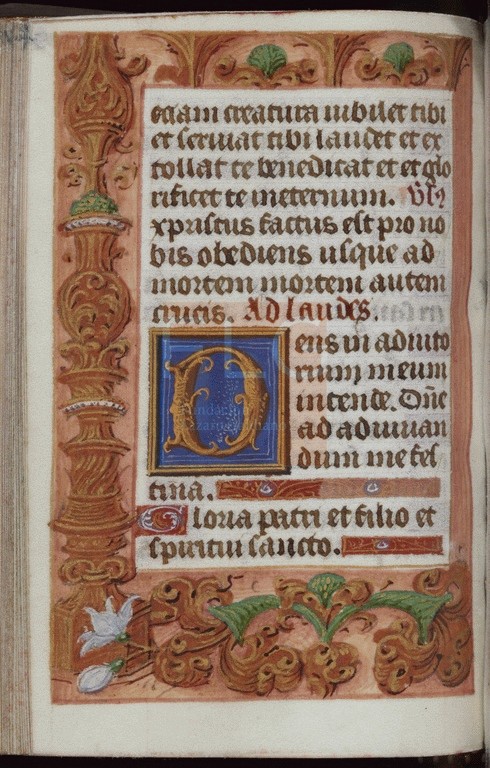 eciam creatura iubilet tibi
et seruiat tibi laudet et ex
tollat te benedicat et et glo
rificet te ineternum. Vs
xpristus factus est pro no
bis obediens usque ad
mortem mortem autem
crucis. Ad laudes.
Deus in adiuto
rium meum
intende. Dñe
ad adiuuan
dum me fes
tina.
Gloria patri et filio et
spiritui sancto.